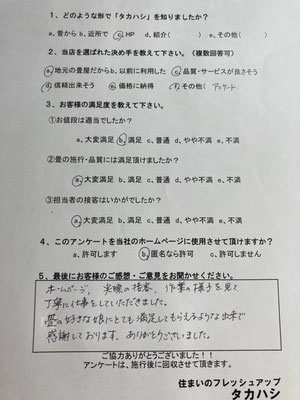 1、どのような形で「タカハシ」を知りましたか？
a、昔から b、近所で c、HP d、紹介（　　　） e、その他（　　　）
2、当店を選ばれた決め手を教えて下さい。（複数回答可）
a、地元の畳屋だから b、以前に利用した c、品質・サービスが良さそう
d、信頼出来そう e、価格に納得 f、その他（ アンケート
3、お客様の満足度を教えて下さい。
①お値段は適当でしたか？
a、大変満足 b、満足 c、普通 d、やや不満 e、不満
②畳の施行・品質には満足頂けましたか？
a、大変満足 b、満足 c、普通 d、やや不満 e、不満
③担当者の接客はいかがでしたか？
a、大変満足 b、満足 c、普通 d、やや不満 e、不満
4、このアンケートを当社のホームページに使用させて頂けますか？
a、許可します b、匿名なら許可 c、許可しません
5、最後にお客様のご感想・ご意見をお聞かせください。
ホームページ、実際の接客、作業の様子を見て
丁寧に仕事をしていただきました。
畳の好きな娘にとても満足してもらえるような出来で
感謝しております。ありがとうございました。
ご協力ありがとうございました！！
アンケートは、施行後に回収させて頂きます。
住まいのフレッシュアップ
タカハシ